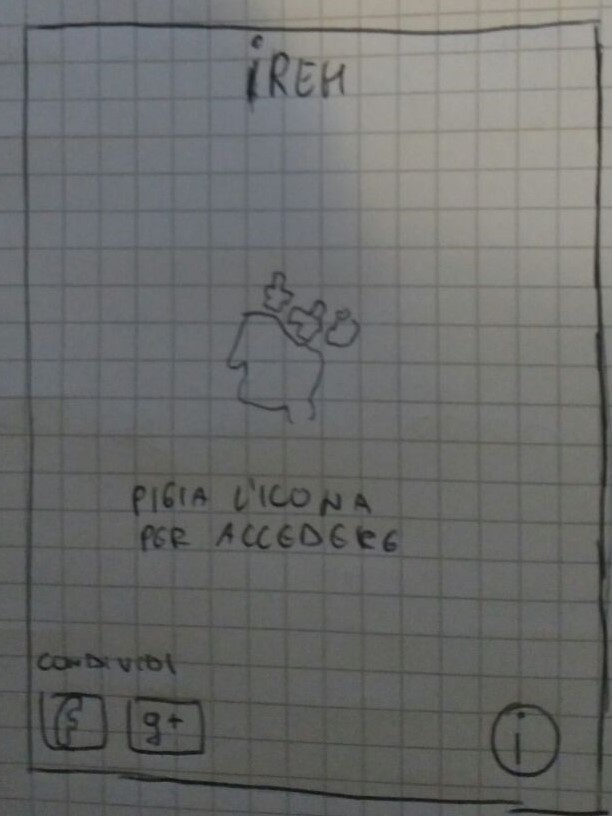 iREH
PIGIA L'ICONA
PER ACCEDERE
CONDIVIDI
f g+
i